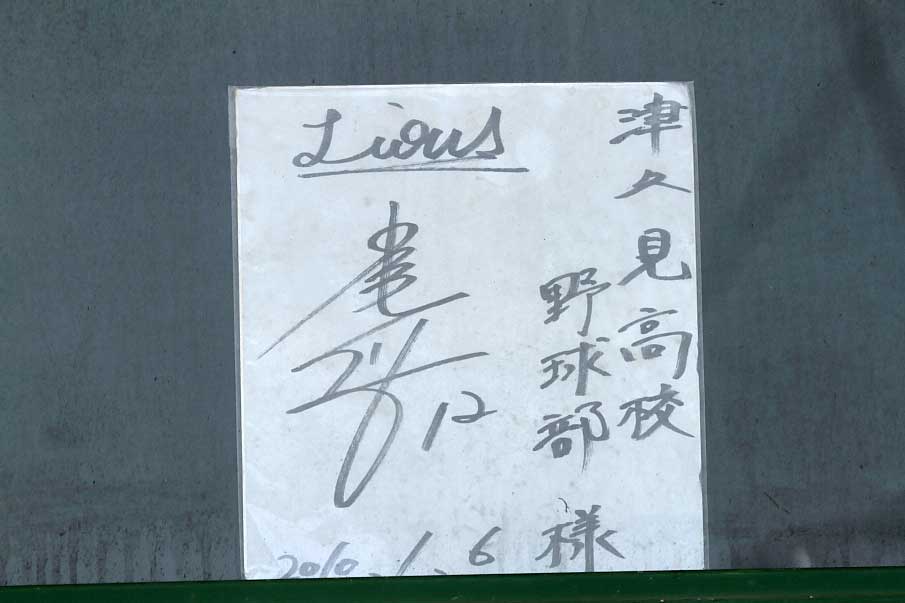 津久見高校
野球部
様
Lions
12
2010.1.6